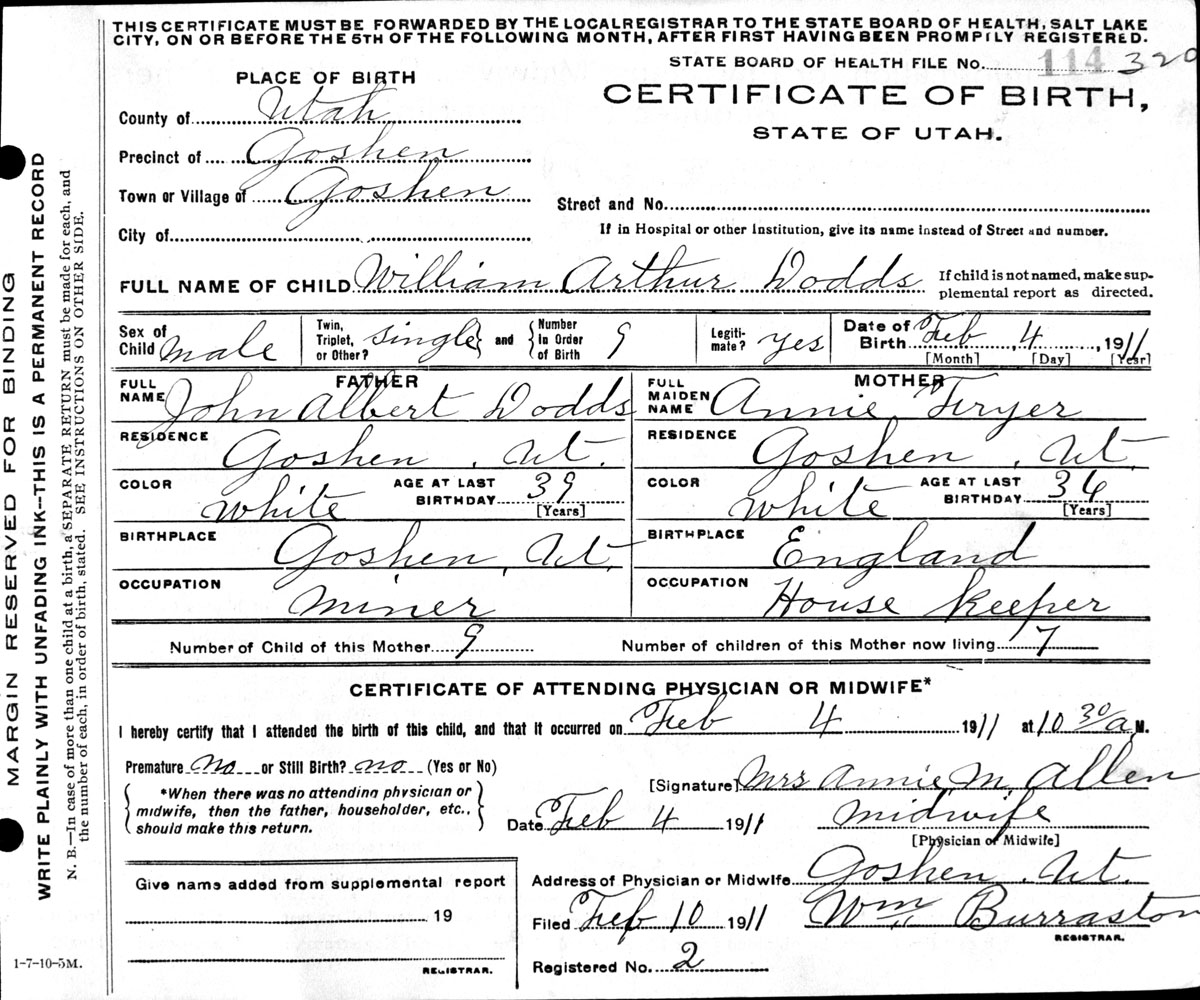 THIS CERTIFICATE MUST BE FORWARDED BY THE LOCAL REGISTRAR TO THE STATE BOARD OF HEALTH, SALT LAKE
CITY, ON OR BEFORE THE 5TH OF THE FOLLOWING MONTH, AFTER FIRST HAVING BEEN PROMPTLY REGISTERED.
STATE BOARD OF HEALTH FILE No. 114 320
PLACE OF BIRTH
CERTIFICATE OF BIRTH,
STATE OF UTAH.
County of Utah
Precinct of Goshen
Town or Village of Goshen
Street and No.
City of
If in Hospital or other Institution, give its name instead of Street and number.
FULL NAME OF CHILD William Arthur Dodds
If child is not named, make sup-
plemental report as directed.
Sex of Child male
Twin, Triplet, or Other? single and Number In Order of Birth 9
Legiti-mate? yes
Date of Birth Feb 4, 1911
[Month] [Day] [Year]
FATHER
FULL NAME John Albert Dodds
RESIDENCE Goshen, Ut.
COLOR white AGE AT LAST BIRTHDAY 39
[Years]
BIRTHPLACE Goshen, Ut.
OCCUPATION miner
MOTHER
FULL MAIDEN NAME Annie Fryer
RESIDENCE Goshen, Ut.
COLOR white AGE AT LAST BIRTHDAY 36
[Years]
BIRTHPLACE England
OCCUPATION House keeper
Number of Child of this Mother 9 Number of children of this Mother now living 7
CERTIFICATE OF ATTENDING PHYSICIAN OR MIDWIFE*
I hereby certify that I attended the birth of this child, and that it occurred on Feb 4 1911 at 10 30/a M.
Premature no or Still Birth? no (Yes or No)
*When there was no attending physician or
midwife, then the father, householder, etc.,
should make this return.
[Signature] Mrs Annie M. Allen
Date Feb 4 1911 midwife
[Physician or Midwife]
Give name added from supplemental report
19
REGISTRAR.
Address of Physician or Midwife Goshen, Ut.
Filed Feb 10 1911 Wm Burraston
REGISTRAR.
Registered No. 2
1-7-10-5M.
MARGIN RESERVED FOR BINDING
WRITE PLAINLY WITH UNFADING INK--THIS IS A PERMANENT RECORD
N. B.—In case of more than one child at a birth, a SEPARATE RETURN must be made for each, and
the number of each, in order of birth, stated. SEE INSTRUCTIONS ON OTHER SIDE.